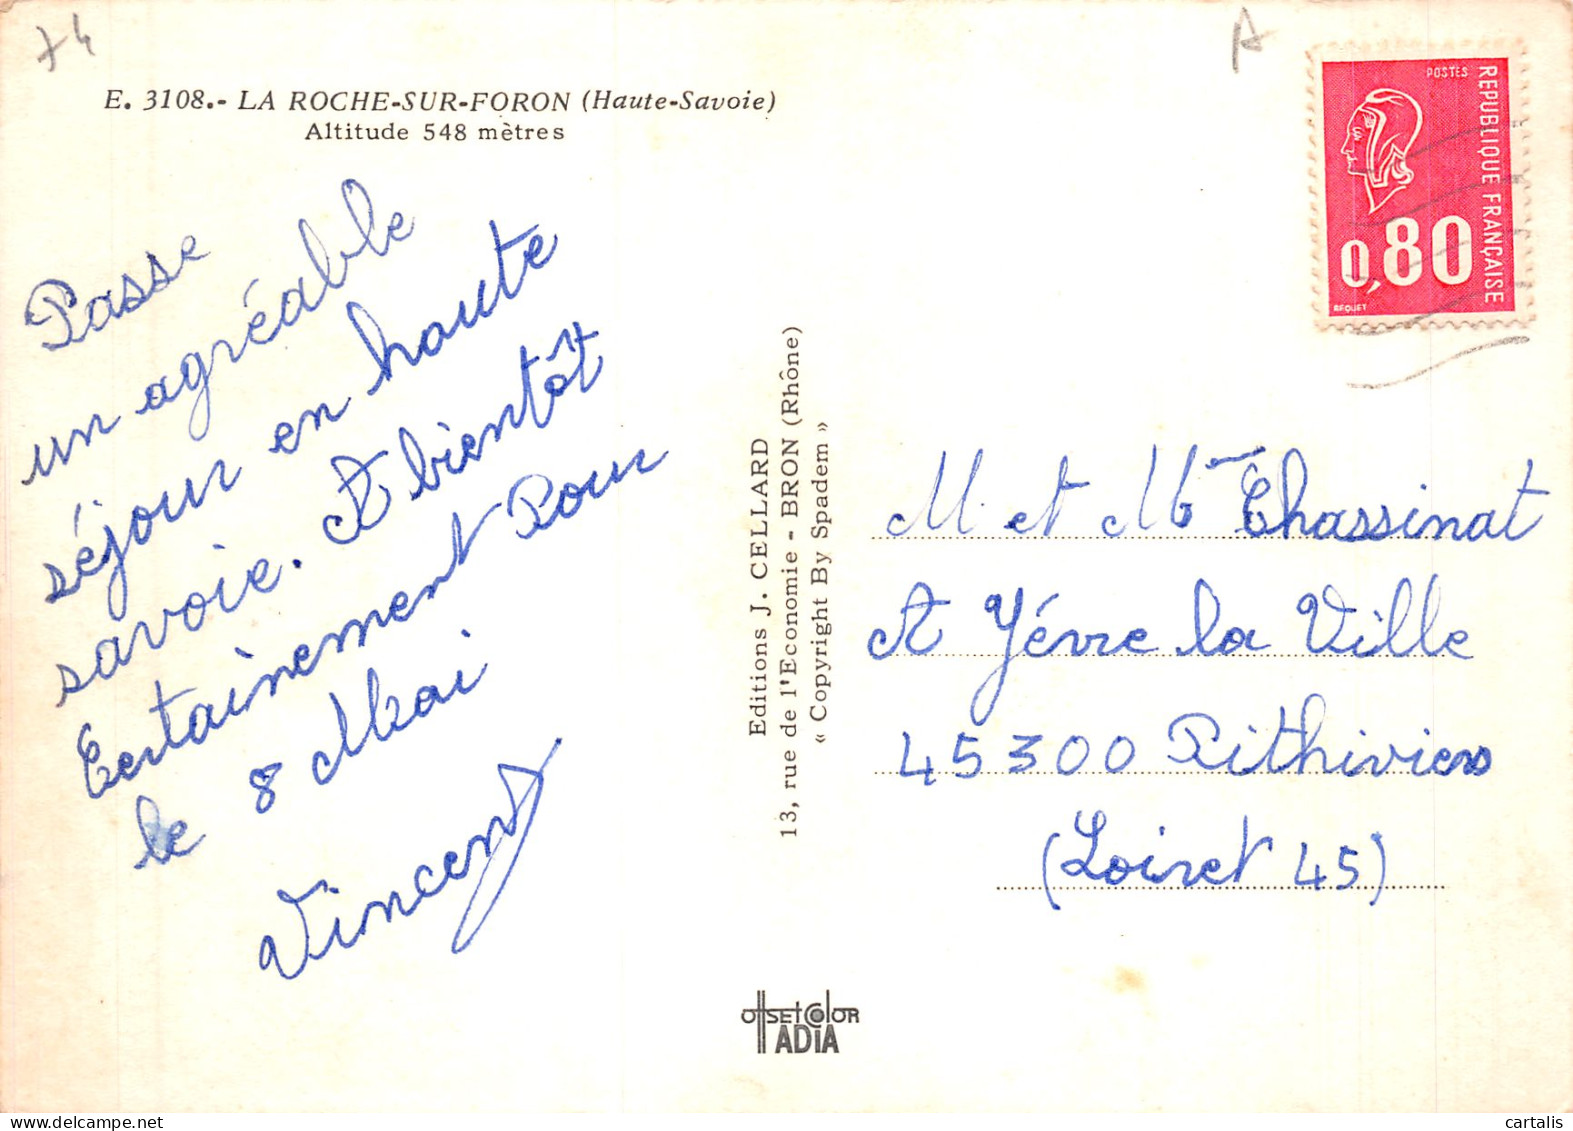 74
A
E. 3108.- LA ROCHE-SUR-FORON (Haute-Savoie)
Altitude 548 mètres
Passe
un agréable
séjour en haute
savoie. A bientôt
Certainement Pour
le 8 Mai
Vincent
Editions J. CELLARD
13, rue de l'Economie - BRON (Rhône)
« Copyright By Spadem »
POSTES
REPUBLIQUE FRANÇAISE
0,80
BEQUET
M et Me Chassinat
A Yévre la Ville
45300 Pithiviers
(Loiret 45)
OFFSET COLOR
ADIA
cartalis